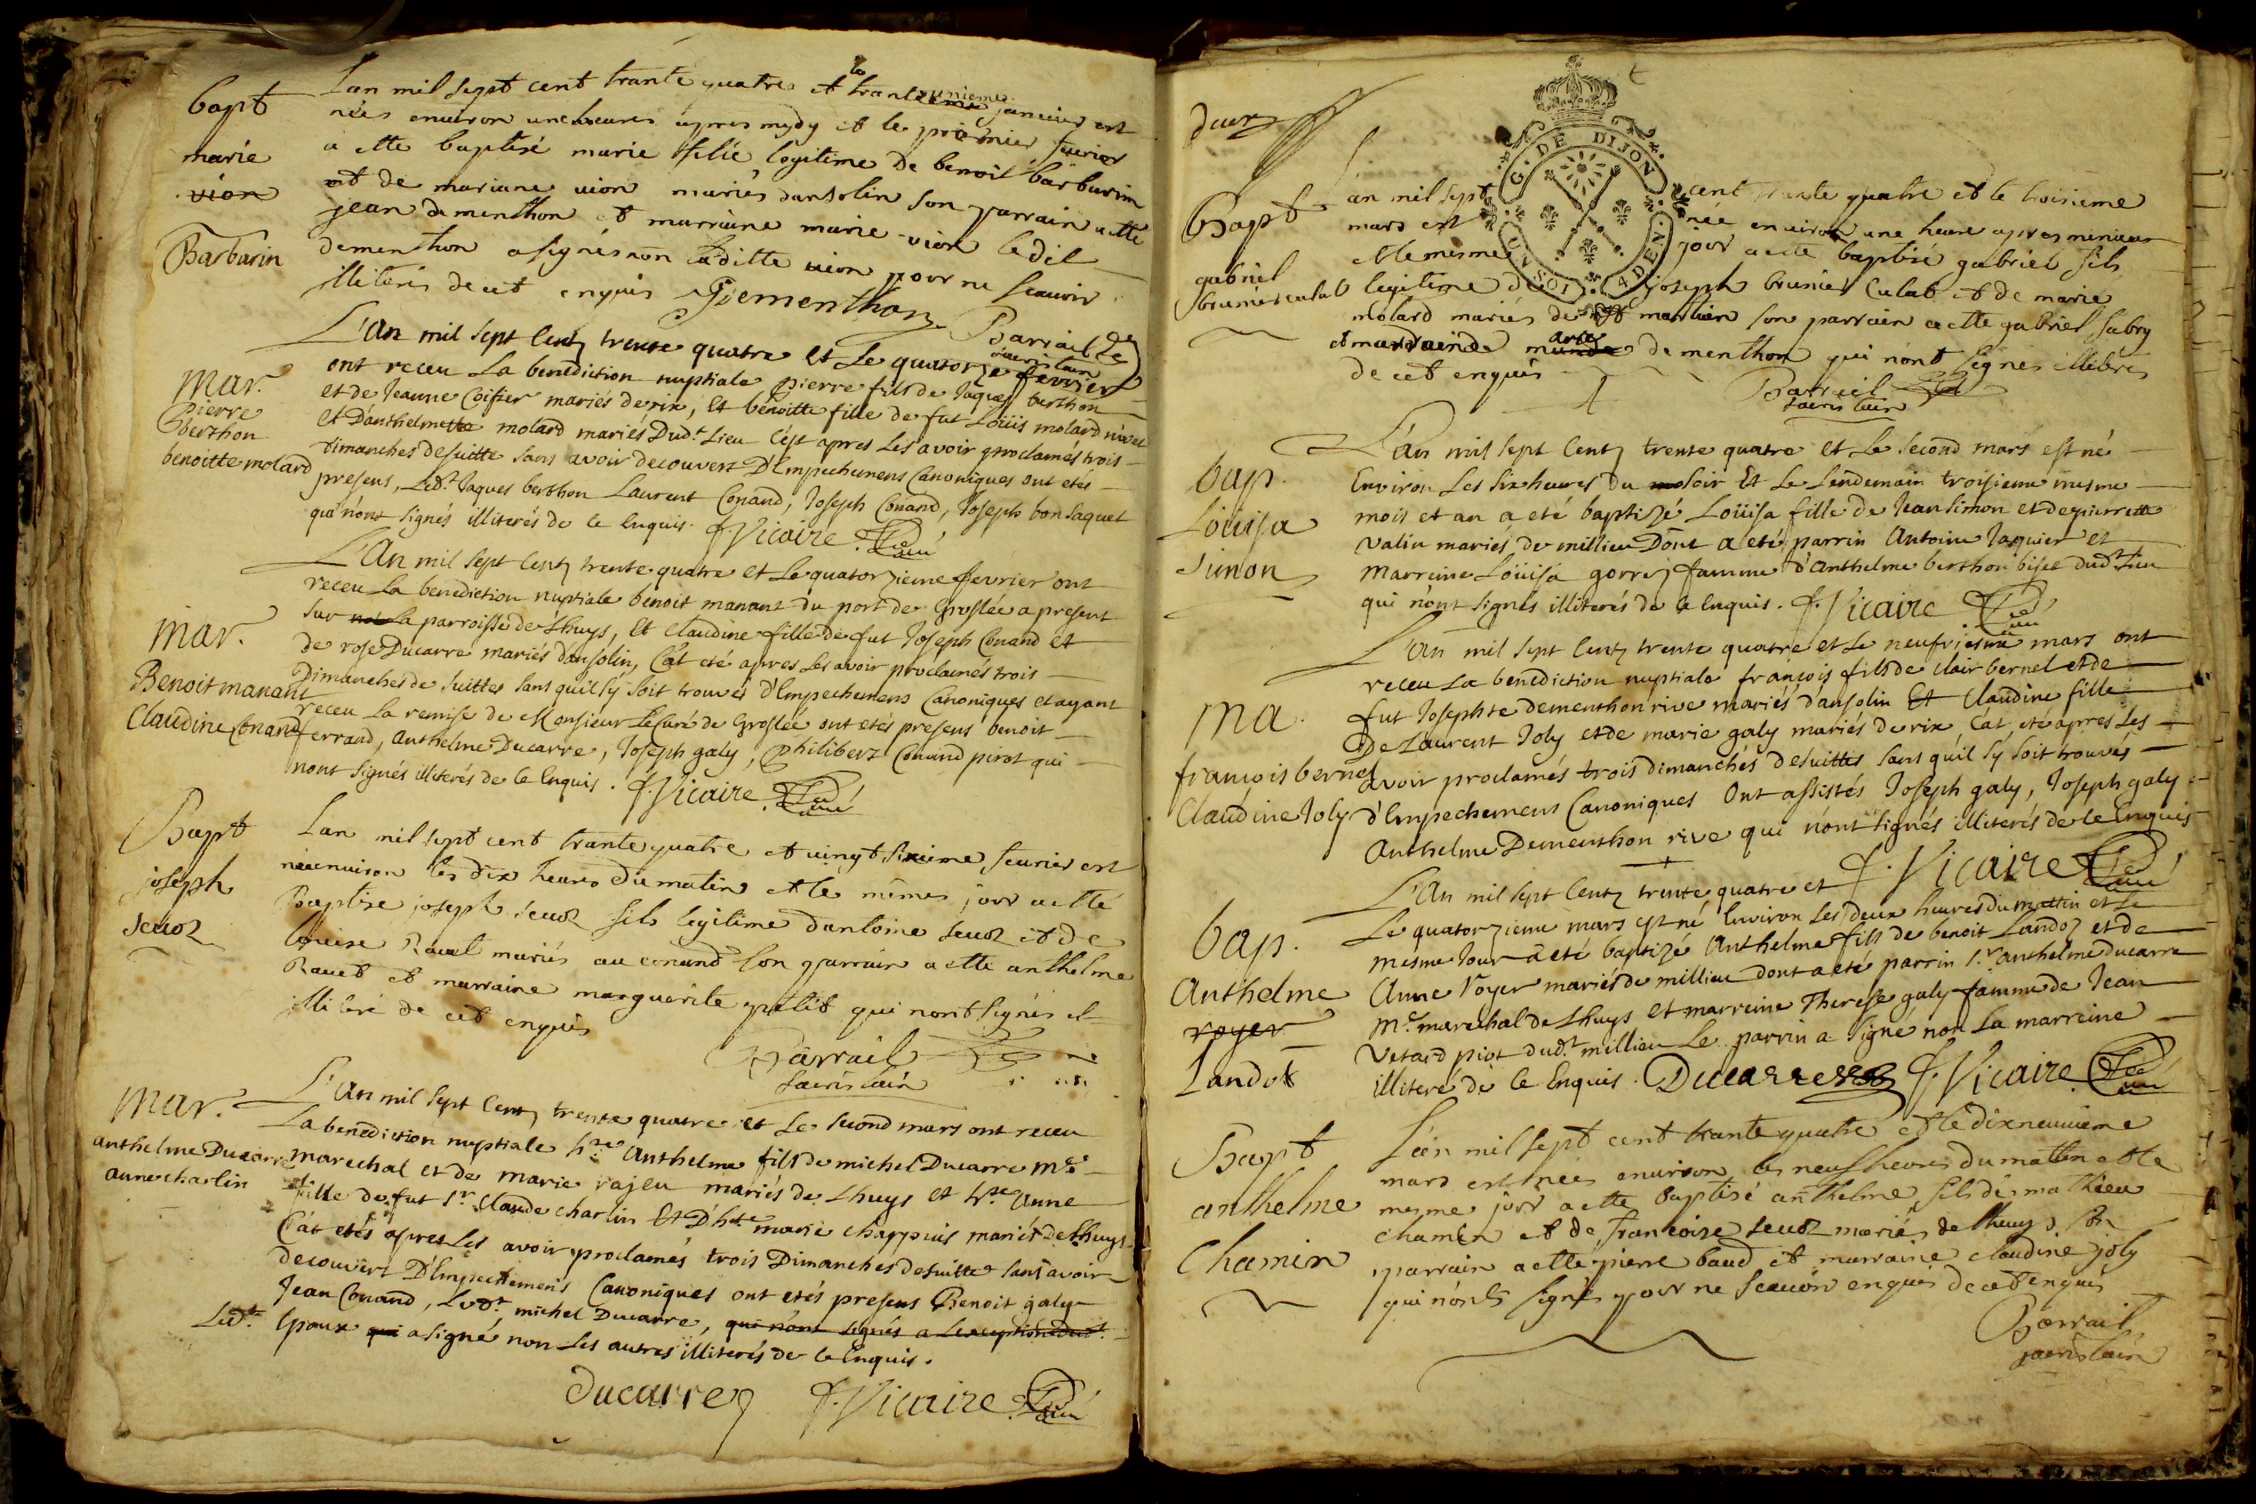 bapt
marie
vion
Barbarin
Lan mil sept cent trante quatre et le trante unieme janvier est
née environ une heures apres mydy et le premier fevrier
a ette baptisé marie fillie legitime de benoit barbarin
et de mariane vion mariés dansolin son parrain a ette
jean dementhon et marraine marie vion ledit
dementhon a signés non laditte vion pour ne scavoir
illiterés de cet enquis Jdementhon
Barrail
sacristain
mar.
Pierre
berthon
benoitte molard
L'An mil sept Centz trente quatre et Le quatorze fevrier
ont receu La benediction nuptiale pierre fils de Jaques berthon
et de Jeanne Coifier mariés de rix, Et bénoitte fille de fut Loüis molard
et D'anthelmette molard mariés Dud.t Lieu C'est apres Les avoir proclamés trois
Dimanches de suitte sans avoir decouvert D'Empechemens Canoniques ont etés
presens, Led.t Jaques berthon Laurent Conand, Joseph Conand, Joseph bonsaquet
qui n'ont signés illiterés de ce Enquis. f. Vicaire Curé
mar.
Benoit manant
Claudine Conand
L'An mil sept Centz trente quatre et Le quatorzieme fevrier ont
receu La benediction nuptiale benoit manant du port de Groslée a present
sur la parroisse de Lhuys, Et Claudine fille de fut Joseph Conand et
de rose Ducarre mariés dansolin, C'at eté apres Les avoir proclamés trois
Dimanches de suittes sans quil s'y soit trouvés d'Empechemens Canoniques et ayant
receu La remise de Monsieur Le Curé de Groslée ont etés presens benoit
ferrand, Anthelme Ducarre, Joseph galy, Philibert Conand pirot qui
nont signés illiterés de Ce Enquis. f. Vicaire Curé
Bapt
joseph
seuoz
Lan mil sept cent trante quatre et vingt sixieme fevrier est
née environ les dix heures du matin et le mêmes jour a etté
Baptise joseph seuoz fils legitime dantoine seuoz et de
louise Ravet mariés au conand son parrain a ette anthelme
Ravet et marraine marguerite petit qui nont signés il
illiteré de cet enquis
Barrail
sacristain
mar.
anthelme Ducarre
anne charlin
L'An mil sept Centz trente quatre et Le second mars ont receu
La benediction nuptiale h.ne Anthelme fils de michel Ducarre M.e
marechal et de marie rajeu mariés de Lhuys et h.te Anne
fille de fut S.r Claude charlin Et D'h.te marie chappuis mariés de Lhuys
C'at etés apres Les avoir proclamés trois Dimanches de suitte sans avoir
decouvert D'Empechemens Canoniques ont etés presens Benoit galy
Jean Conand, Led.t michel Ducarre, qui n'ont signés a Lexception dud.t
Led.t Epoux qui a signé non Les autres illiterés de Ce Enquis.
ducarre f. Vicaire Curé
deux
G. DE DIJON
4 DEN
Bapt
gabriel
brunier culat
Lan mil sept cent trante quatre et le troisieme
mars est née environ une heure apres
et le mesme jour a ette baptisé gabriel fils
legitime de joseph brunier Culat et de marie
molard mariés de son parrain a ette gabriel
et marraine marie dementhon qui nont signés illiterés
de cet enquis
Barrail
sacristain
bap.
Loüisa
Simon
L'An mil sept Centz trente quatre et Le second mars est né
Environ Les six heures du soir Et Le Lendemain troisieme mesme
mois et an a eté baptizé Loüisa fille de Jean Simon et de pierrette
Valin mariés de millieu Dont a eté parrin Antoine Jaquier et
marreine Loüisa gorrez famme d'Anthelme berthon bijet dud.t Lieu
qui n'ont signés illiterés de ce Enquis. f. Vicaire Curé
Ma.
françois bernel
Claudine Joly
L'An mil sept Centz trente quatre et Le neufvieme mars ont
receu La benediction nuptiale françois fils de clair bernel et de
fut Josephte dementhon rive mariés d'ansolin Et Claudine fille
De Laurent Joly et de marie galy mariés de rix C'at eté apres Les
avoir proclamés trois dimanches de suittes sans qu'il s'y soit trouvés
d'Empechemens Canoniques Ont assistés Joseph galy, Joseph galy
Anthelme Dementhon rive qui n'ont signés illiterés de Ce Enquis
f. Vicaire Curé
bap.
Anthelme
royer
Landoz
L'An mil sept Centz trente quatre et
Le quatorzieme mars est né Environ Les deux heures du mattin et Le
mesme Jour a eté baptizé Anthelme fils de benoit Landoz et de
Anne royer mariés de millieu dont a eté parrin S.r anthelme ducarre
M.e marechal de Lhuys et marreine Therese galy famme de Jean
Vetard piot dud.t millieu Le parrin a signé non La marreine
illiteré de Ce Enquis. Ducarre f. Vicaire Curé
Bapt
anthelme
Chamin
Lan mil sept cent trante quatre et le dixneuvieme
mars est née environ les neuf heures du mattin et le
mesme jour a ette baptisé anthelme fils de mathieu
chamin et de francoise seuoz mariés de lhuys son
parrain a ette pierre baud et marraine claudine joly
qui nont signés pour ne scavoir enquis de cet enquis
Barrail
sacristain